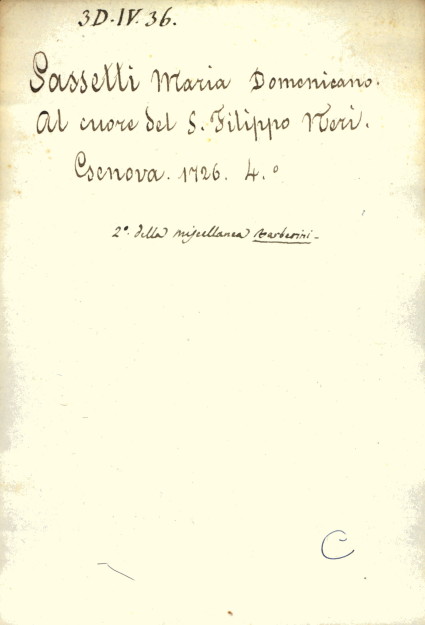 3D. IV. 36.
Sassetti Maria Domenicano.
Al cuore del S. Filippo Neri.
Genova. 1726. 4.°
2°. della miscellanea Barberini -
C